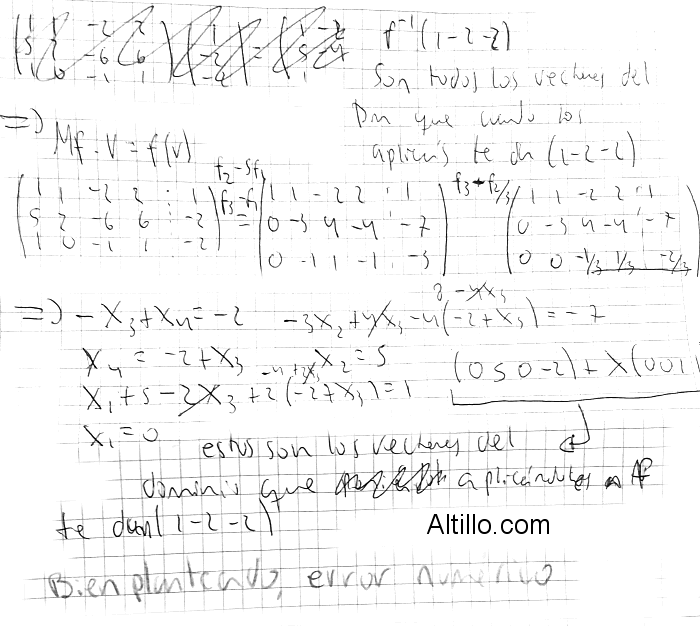 f⁻¹(1 -2 -2)
Son todos los vectores del
Dm que cuando los
aplicás te da (1 -2 -2)
=> Mf . V = f(v)
f2-5f1
f3-f1
f3-f2/3
( 1 1 -2 2 : 1 ) = ( 1 1 -2 2 : 1 ) ( 1 1 -2 2 : 1 )
( 5 2 -6 6 : -2 ) ( 0 -3 4 -4 : -7 ) ( 0 -3 4 -4 : -7 )
( 1 0 -1 1 : -2 ) ( 0 -1 1 -1 : -3 ) ( 0 0 -1/3 1/3 : -2/3 )
=> -X3+X4=-2 -3X2+4X3-4(-2+X3)=-7
8-4X3
X4=-2+X3 X2=5
-4+2X3
X1+5-2X3+2(-2+X3)=1 (0 5 0 -2)+X(0 0 1 1
X1=0
estos son los vectores del
dominio que aplicándoles f
te dan (1 -2 -2)
Altillo.com
Bien planteado, error numérico